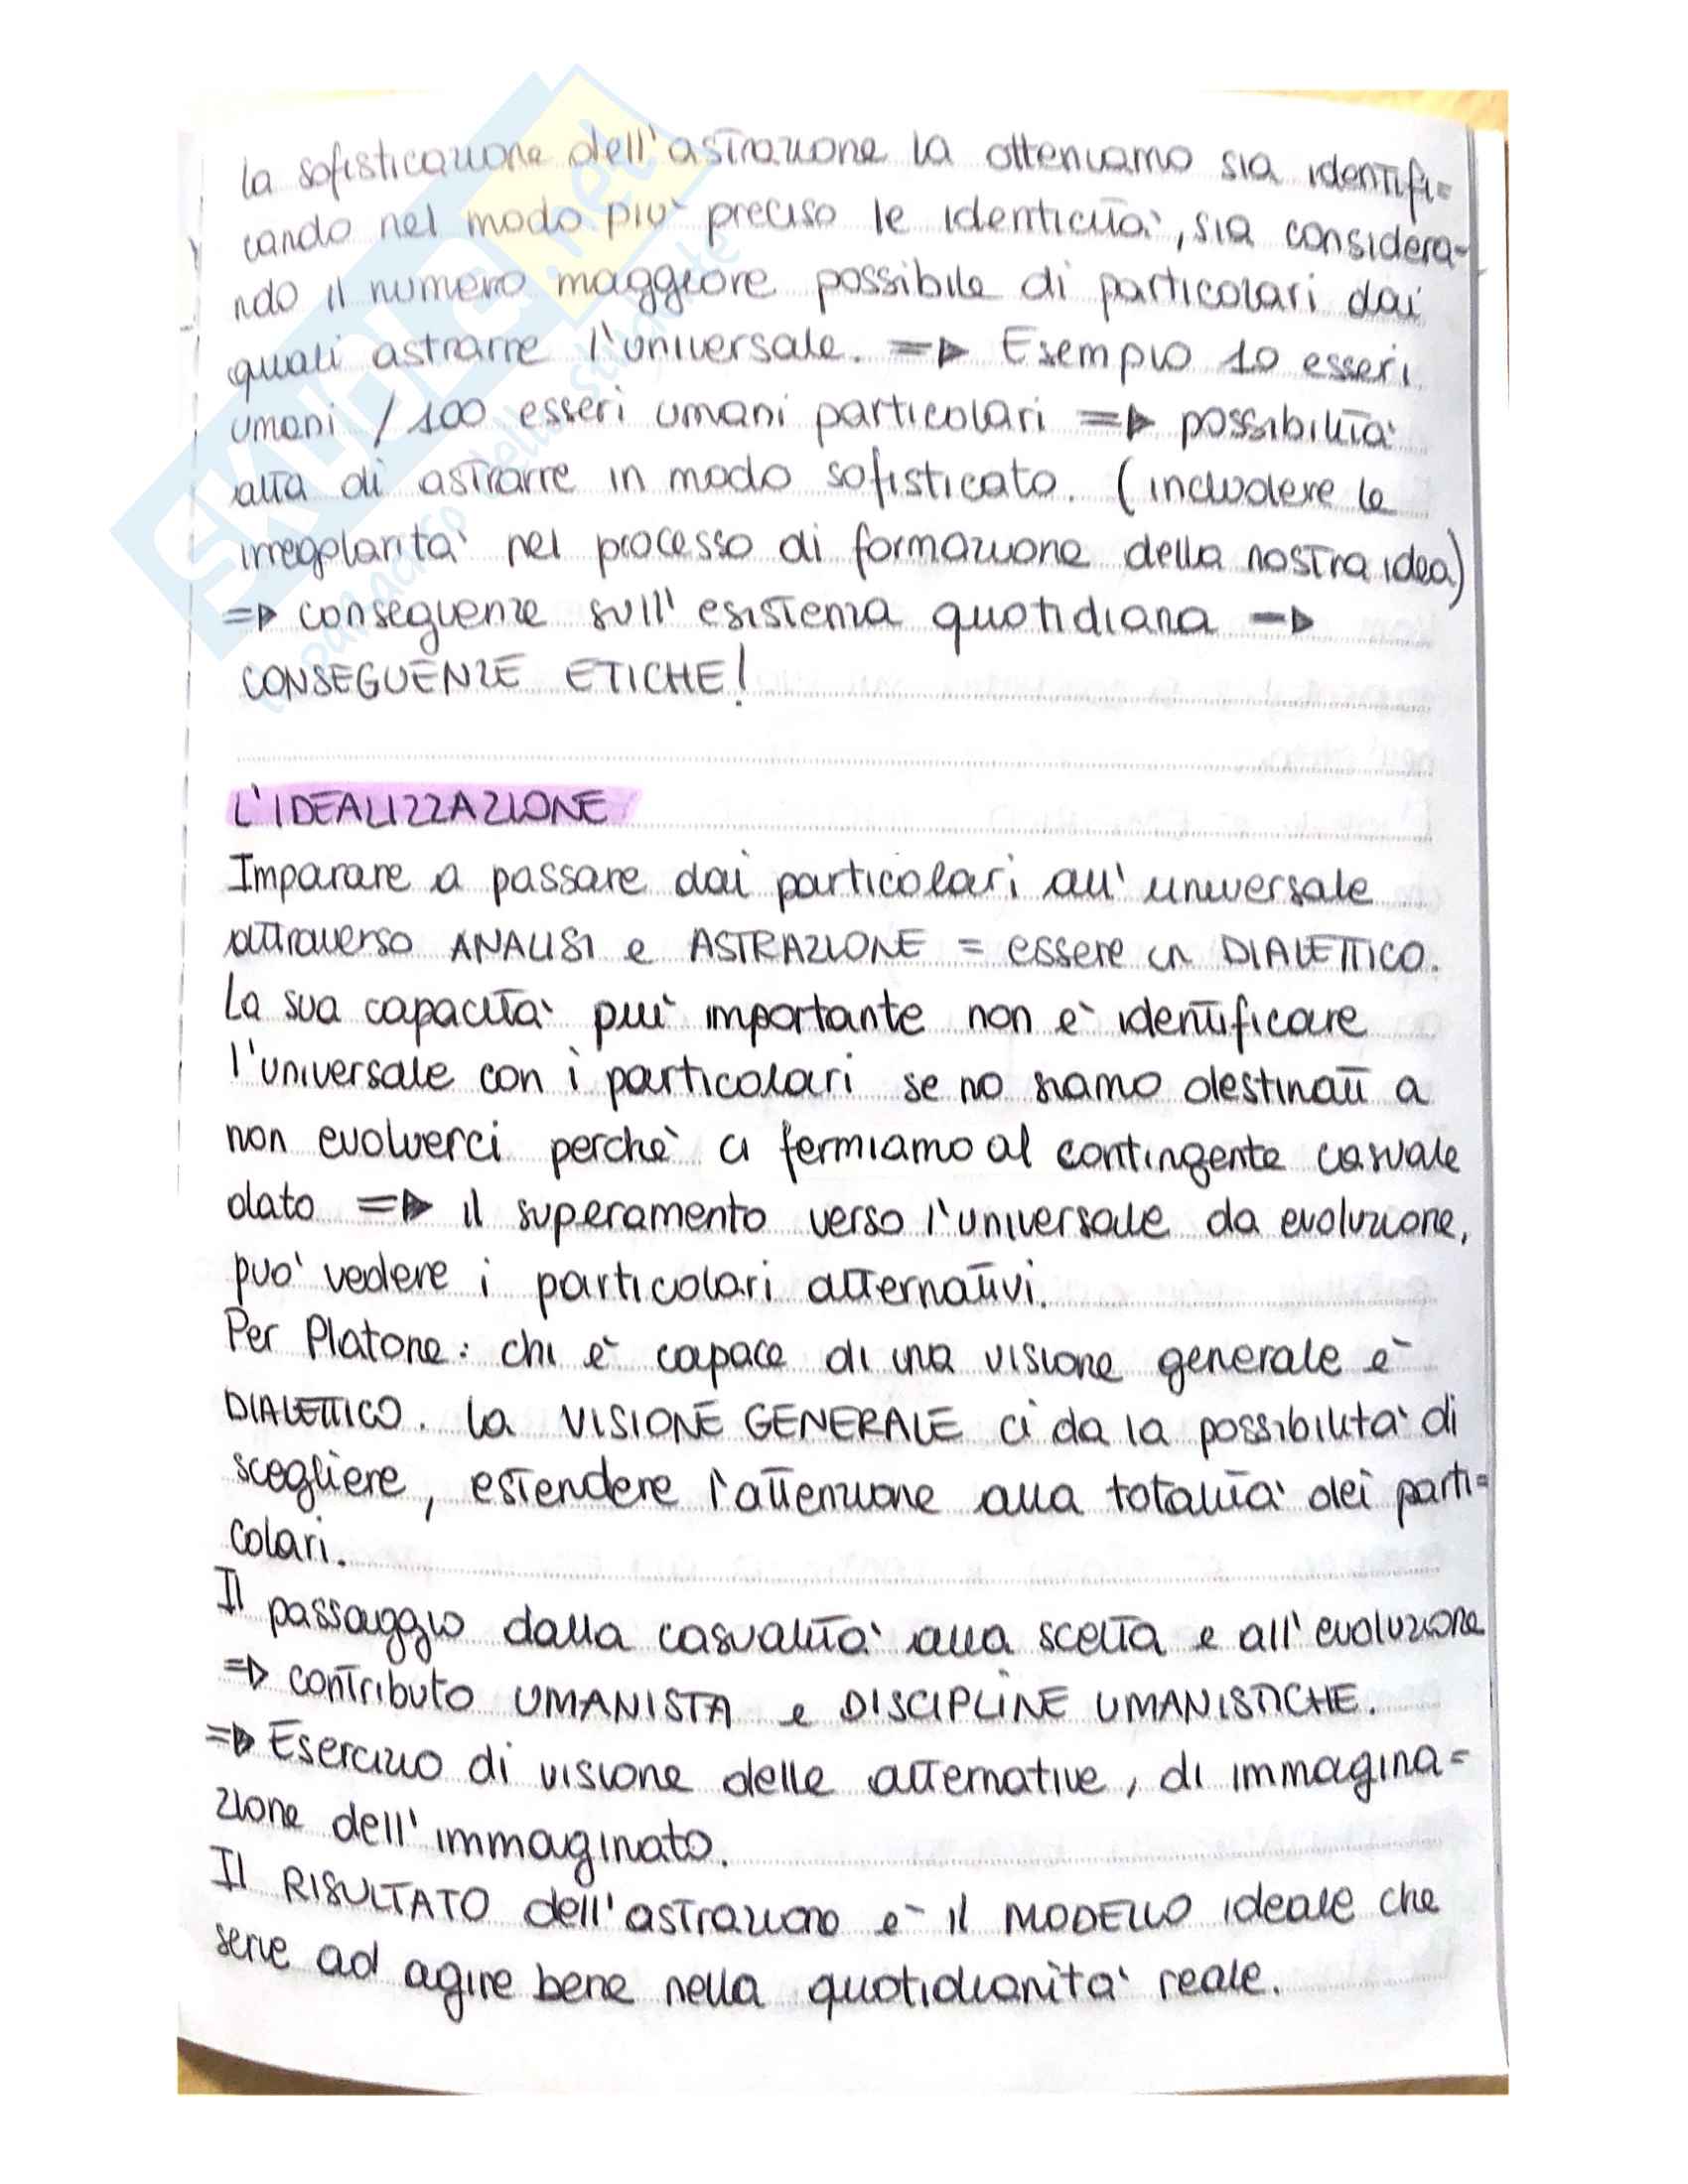 la sofisticazione dell'astrazione la otteniamo sia identifi=
cando nel modo più preciso le identicità, sia considera-
ndo il numero maggiore possibile di particolari dai
quali astrarre l'universale. => Esempio 10 esseri
umani / 100 esseri umani particolari => possibilità
alta di astrarre in modo sofisticato. (includere le
irregolarità nel processo di formazione della nostra idea)
=> conseguenze sull'esistenza quotidiana ->
CONSEGUENZE ETICHE!
L'IDEALIZZAZIONE
Imparare a passare dai particolari all'universale
attraverso ANALISI e ASTRAZIONE = essere un DIALETTICO.
La sua capacità più importante non è identificare
l'universale con i particolari se no siamo destinati a
non evolverci perchè ci fermiamo al contingente casuale
dato => il superamento verso l'universale da evoluzione,
può vedere i particolari alternativi.
Per Platone: chi è capace di una visione generale è
DIALETTICO. La VISIONE GENERALE ci da la possibilità di
scegliere, estendere l'attenzione alla totalità dei parti=
colari.
Il passaggio dalla casualità alla scelta e all'evoluzione
=> contributo UMANISTA e DISCIPLINE UMANISTICHE.
=> Esercizio di visione delle alternative, di immagina=
zione dell'immaginato.
Il RISULTATO dell'astrazione è il MODELLO ideale che
serve ad agire bene nella quotidianità reale.
SKUOLA.net